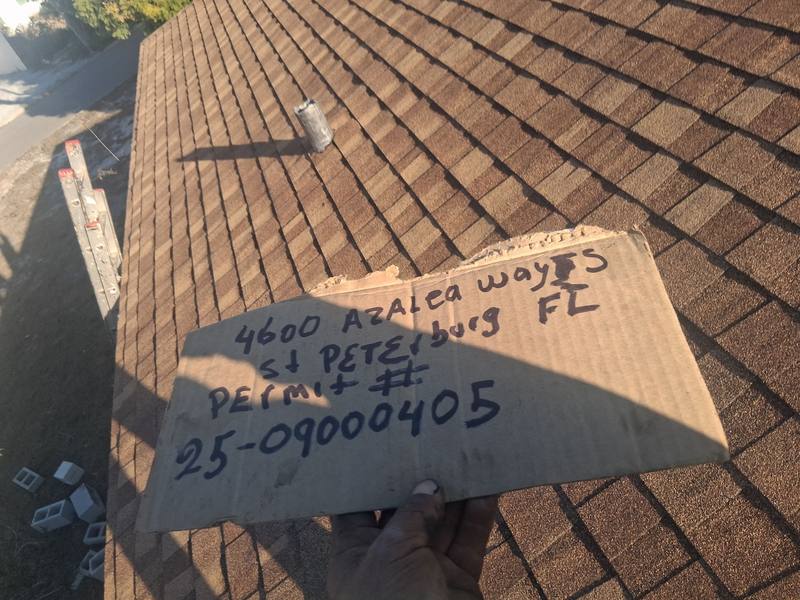 4600 AZALea way S
St PETErburg FL
PErmit #
25-09000405